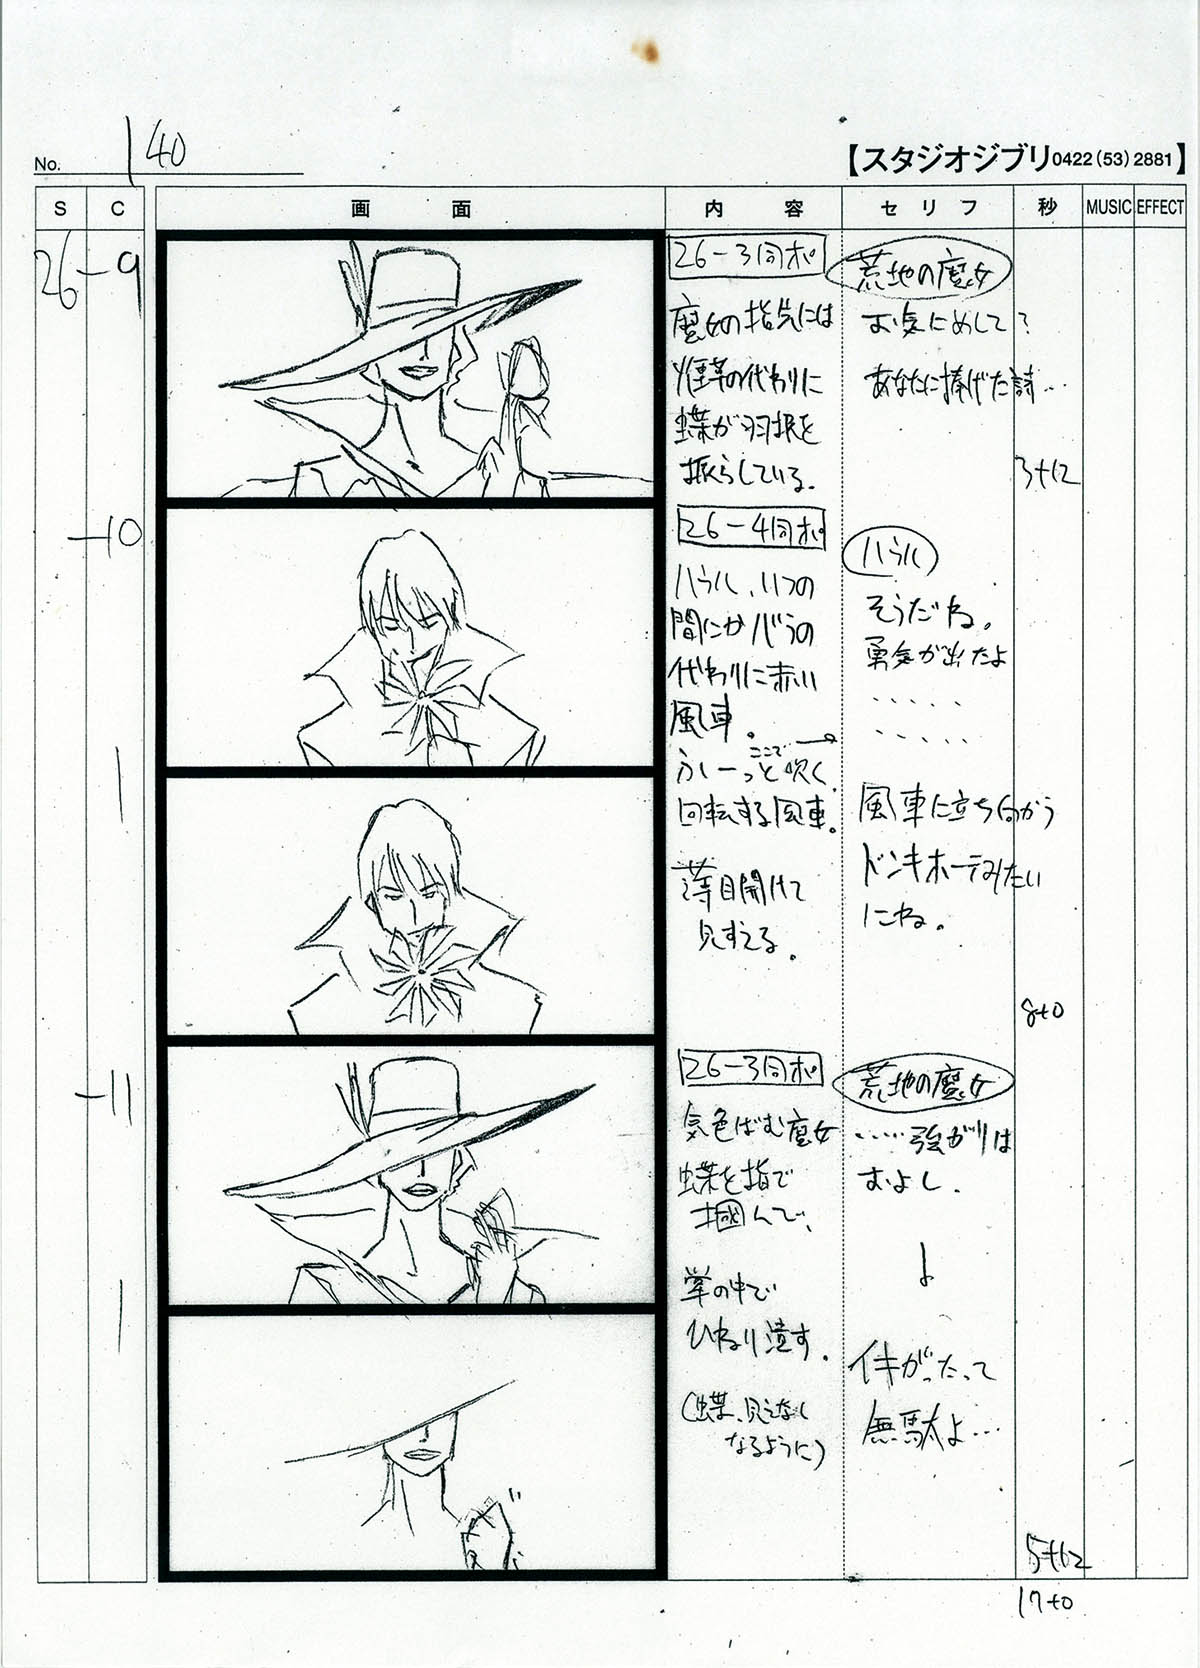 No. 140
【スタジオジブリ 0422(53)2881】
S C 画面 内容 セリフ 秒 MUSIC EFFECT
26-9
26-3同ポ
魔女の指先には
煙草の代わりに
蝶が羽根を
振らしている。
荒地の魔女
お気にめして?
あなたに捧げた詩…
3+12
-10
26-4同ポ
ハウル、いつの
間にかバラの
代わりに赤い
風車。
ここで→
ふーっと吹く
回転する風車。
薄目開けて
見すえる。
ハウル
そうだね。
勇気が出たよ
・・・・・
・・・・・
風車に立ち向かう
ドンキホーテみたい
にね。
8+0
-11
26-3同ポ
気色ばむ魔女
蝶を指で
掴んで、
掌の中で
ひねり潰す。
(蝶、見えなく
なるように)
荒地の魔女
……強がりは
およし。
イキがったって
無駄よ…
5+12
17+0